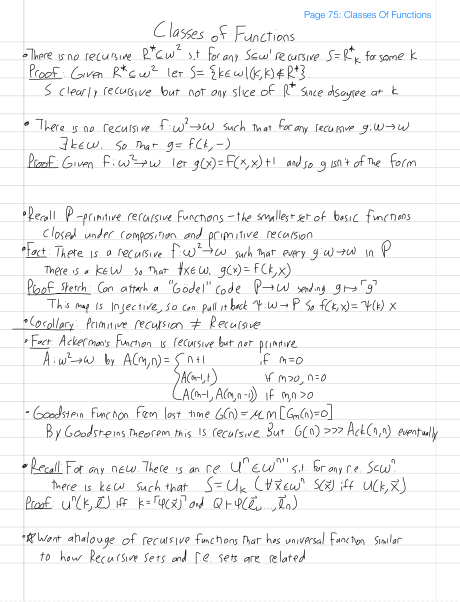 Page 75: Classes Of Functions
Classes of Functions
• There is no recursive R* ⊆ ω² s.t for any S⊆ω' recursive S=R*ₖ for some k
Proof: Given R* ⊆ ω² let S = {k∈ω|(k,k)∉R*}.
S clearly recursive but not any slice of R* since disagree at k
• There is no recursive f:ω²→ω such that for any recursive g:ω→ω
∃k∈ω. so that g= f(k,-)
Proof: Given F:ω²→ω let g(x)=F(x,x)+1 and so g isn't of the form
• Recall P -primitive recursive functions - the smallest set of basic functions
closed under composition and primitive recursion
• Fact: There is a recursive f:ω²→ω such that every g:ω→ω in P
There is a k∈ω so that ∀x∈ω. g(x)=f(k,x)
Proof sketch: Can attach a "Gödel" code P→ω sending g↦⌜g⌝
This map is injective, so can pull it back Ψ:ω→P. So f(k,x)=Ψ(k) x
• Corollary: Primitive recursion ≠ Recursive
• Fact: Ackerman's Function is recursive but not primitive
A:ω²→ω by A(m,n) = { n+1 if m=0
A(m-1,1) if m>0, n=0
A(m-1, A(m,n-1)) if m,n>0
• Goodstein Function from last time G(n) = μm[Gₘ(n)=0]
By Goodsteins theorem this is recursive. But G(n) >>> Ack(n,n) eventually
• Recall: For any n∈ω. There is an r.e. Uⁿ∈ωⁿ⁺¹ s.t. for any r.e. S⊂ωⁿ
there is k∈ω such that S=Uₖ (∀x⃗∈ωⁿ S(x⃗) iff U(k,x⃗)
Proof: Uⁿ(k,l⃗) iff k=⌜φ(x⃗)⌝ and Q⊢φ(l⃗₁,...,l⃗ₙ)
• Want analouge of recursive functions that has universal function similar
to how Recursive sets and r.e. sets are related